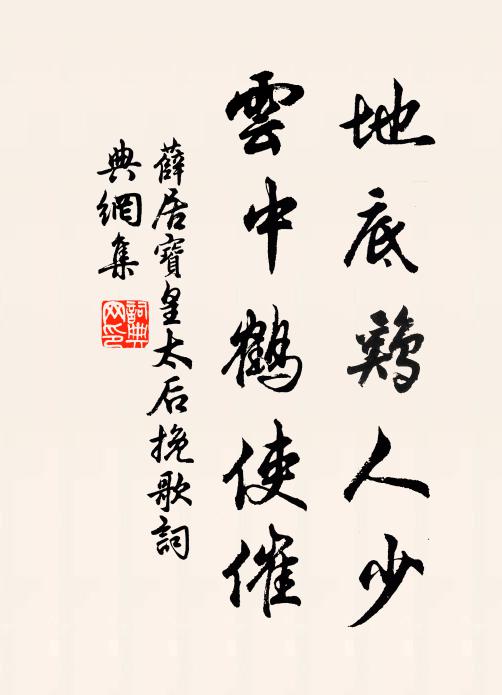 地底鷄人少
雲中鶴使催
薛居寶皇太后挽歌詞
典網集
詞典網印